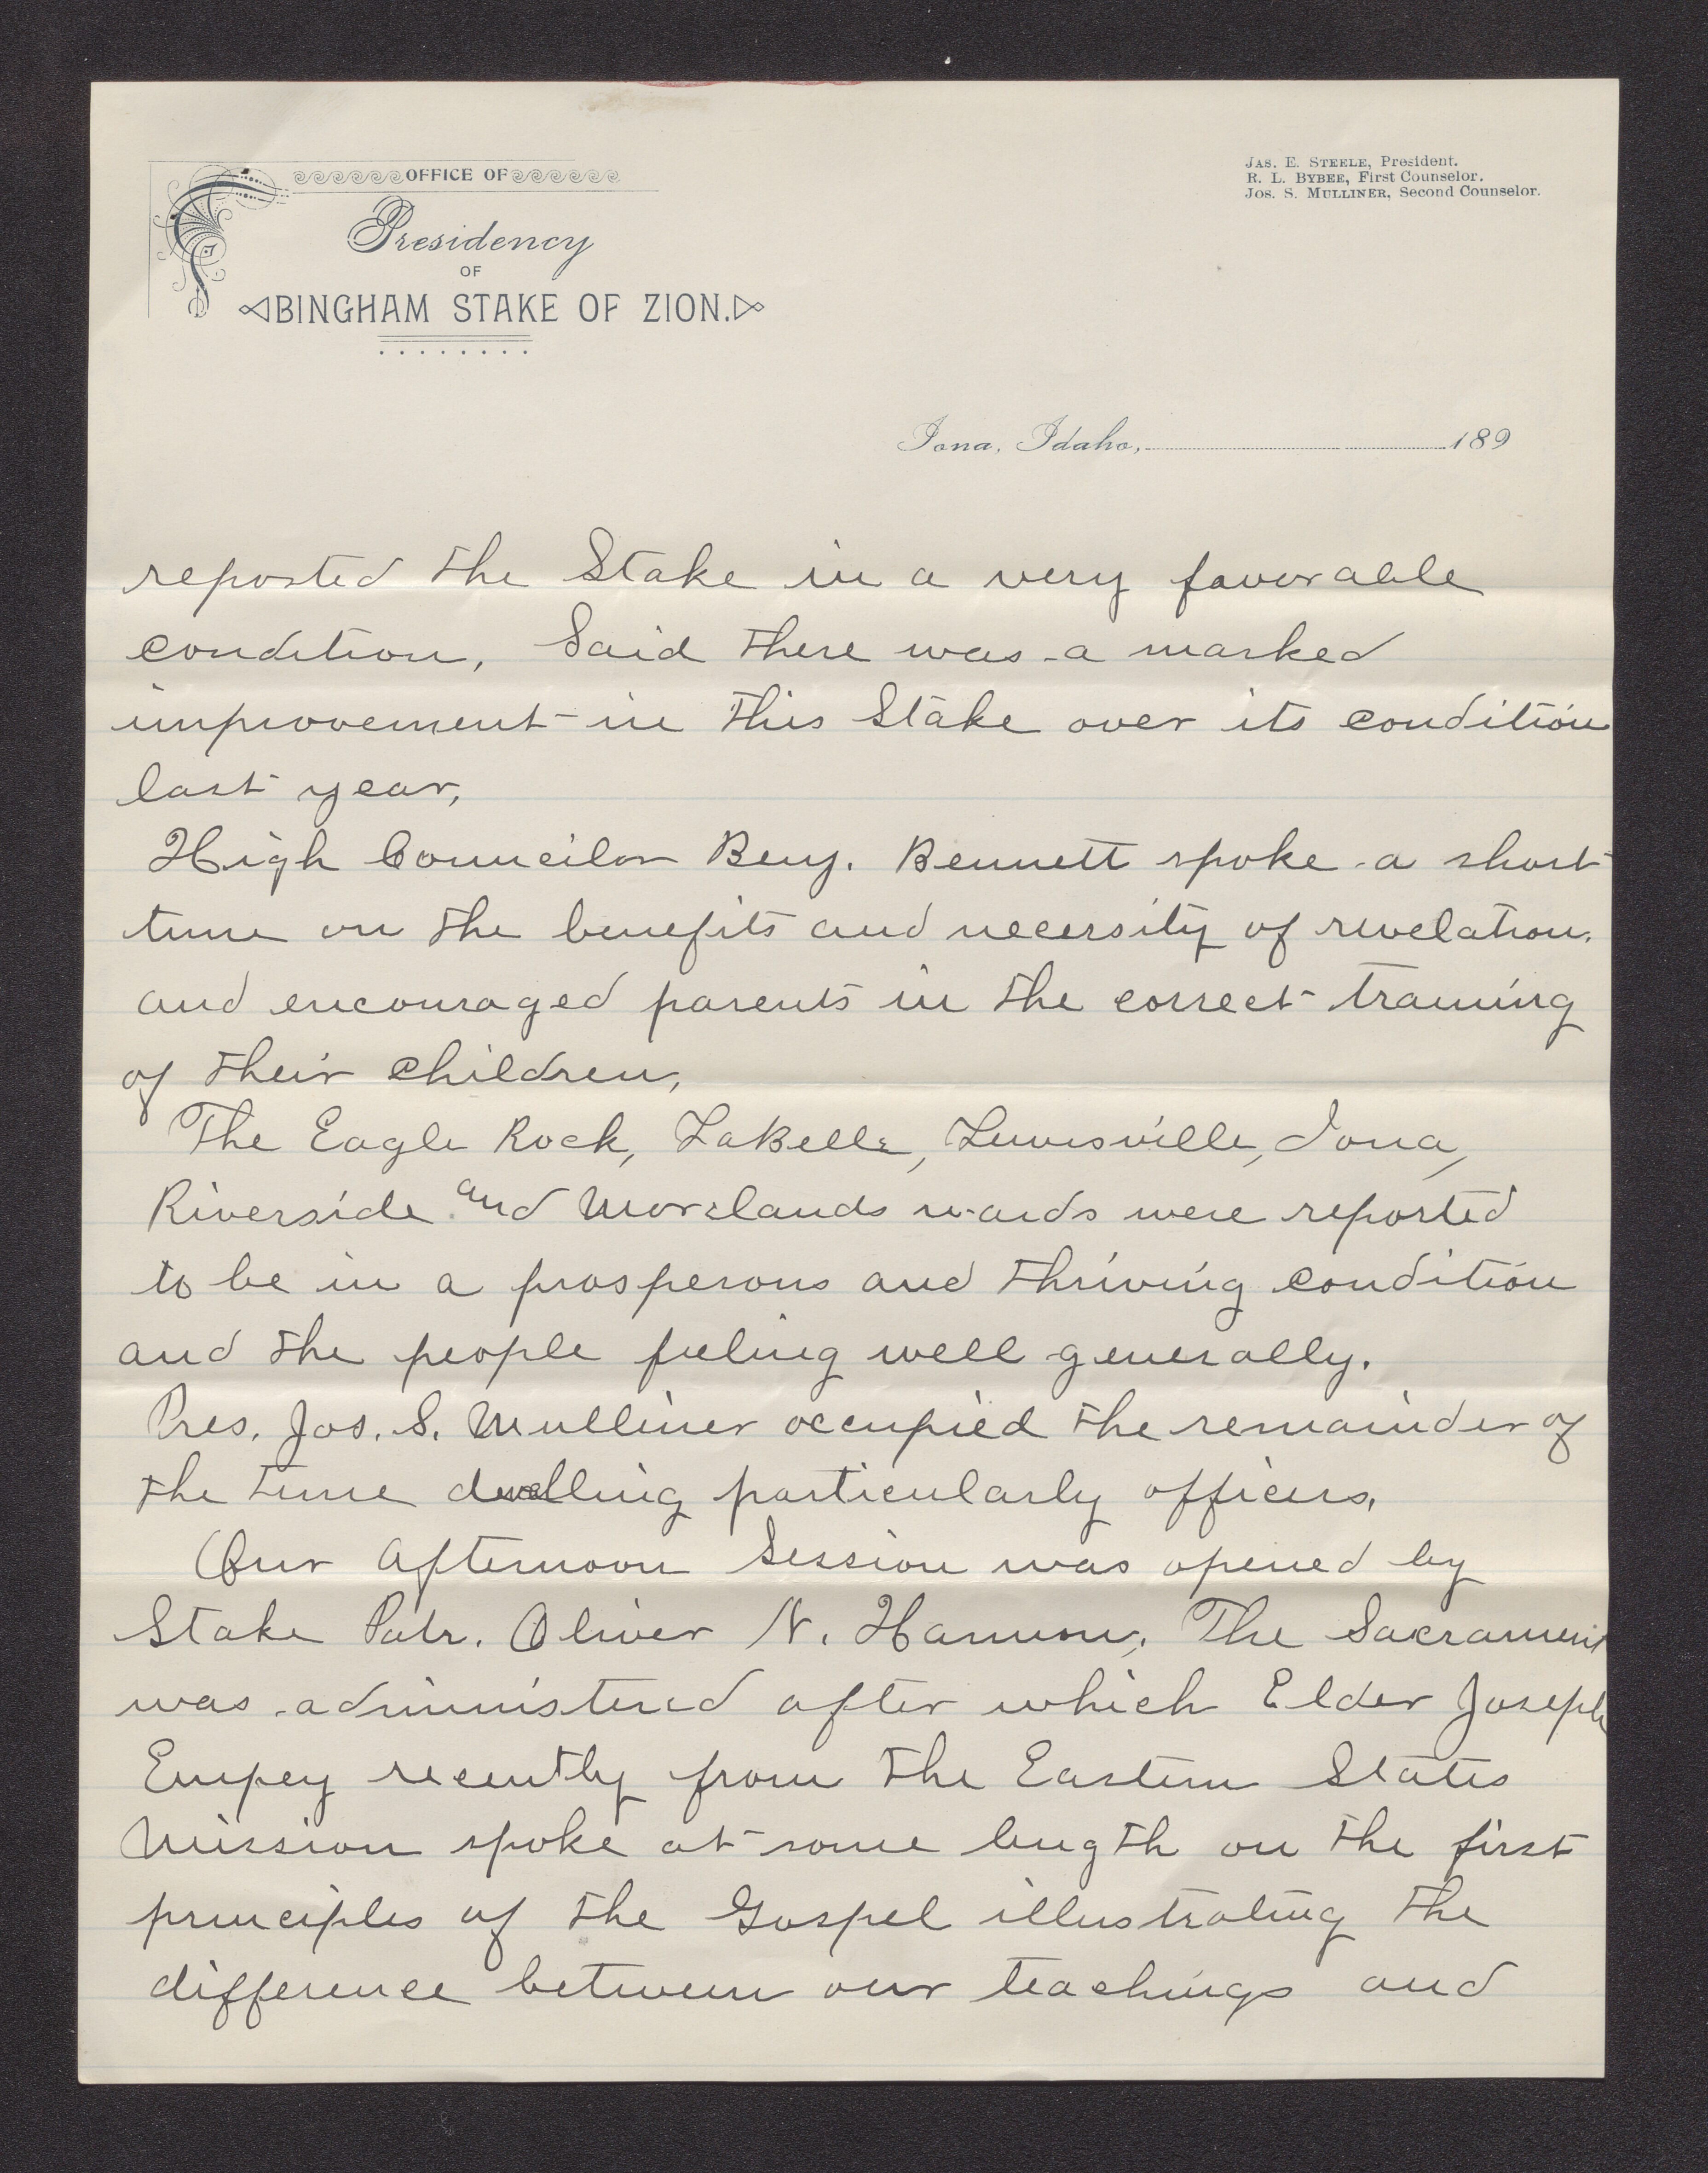 OFFICE OF
Presidency
OF
BINGHAM STAKE OF ZION.
JAS. E. STEELE, President.
R. L. BYBEE, First Counselor.
JOS. S. MULLINER, Second Counselor.
Iona, Idaho, 189
reported the Stake in a very favorable
condition, Said there was a marked
improvement in this Stake over its condition
last year,
High Councilor Benj. Bennett spoke a short
time on the benefits and necessity of revelation.
and encouraged parents in the correct training
of their children,
The Eagle Rock, LaBelle, Lewisville, Iona,
Riverside and Morelands wards were reported
to be in a prosperous and thriving condition
and the people feeling well generally.
Pres. Jos. S. Mulliner occupied the remainder of
the time dwelling particularly officers,
Our afternoon Session was opened by
Stake Patr. Oliver N. Harmon, The Sacrament
was administered after which Elder Joseph
Empey recently from the Eastern States
Mission spoke at some length on the first
principles of the Gospel illustrating the
difference between our teachings and